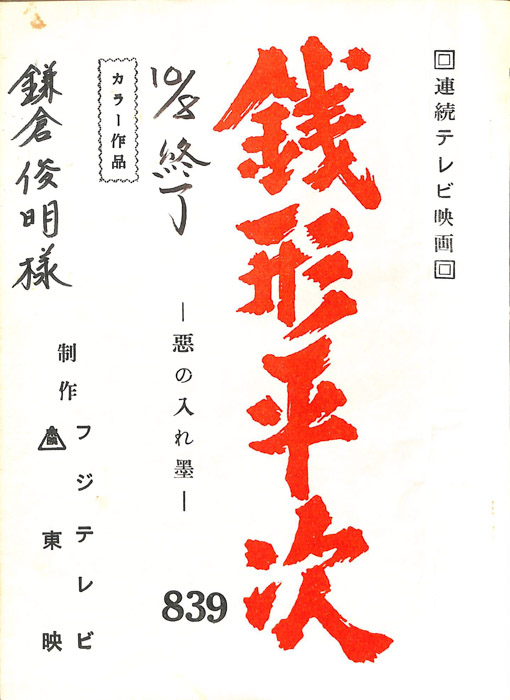 回連続テレビ映画回
銭形平次
―惡の入れ墨―
839
10/8 終了
カラー作品
鎌倉俊明様
制作
フジテレビ
東映